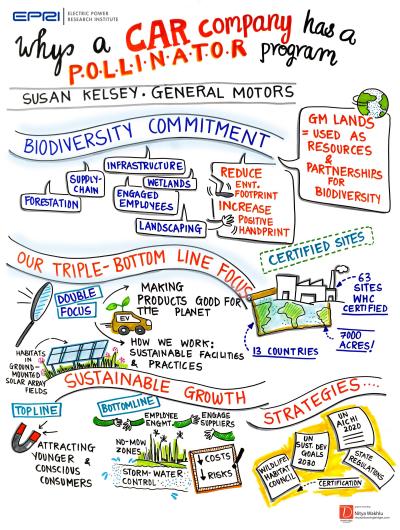 EPRI | ELECTRIC POWER
RESEARCH INSTITUTE
Whys a CAR company has a
P.O.L.L.I.N.A.T.O.R program
SUSAN KELSEY. GENERAL MOTORS
BIODIVERSITY COMMITMENT
GM LANDS
= USED AS
RESOURCES
&
PARTNERSHIPS
FOR
BIODIVERSITY
INFRASTRUCTURE
SUPPLY-
CHAIN
WETLANDS
FORESTATION
ENGAGED
EMPLOYEES
LANDSCAPING
REDUCE
ENVT.
FOOTPRINT
INCREASE
POSITIVE
HANDPRINT
OUR TRIPLE-BOTTOM LINE FOCUS
CERTIFIED SITES
DOUBLE
FOCUS
MAKING
PRODUCTS GOOD FOR
THE PLANET
EV
HOW WE WORK:
SUSTAINABLE FACILITIES
& PRACTICES
HABITATS
IN
GROUND-
MOUNTED
SOLAR ARRAY
FIELDS
63
SITES
WHC
CERTIFIED
7000
ACRES!
13 COUNTRIES
SUSTAINABLE GROWTH
TOPLINE
ATTRACTING
YOUNGER &
CONSCIOUS
CONSUMERS
BOTTOMLINE
EMPLOYEE
ENGMT.
ENGAGE
SUPPLIERS
NO-MOW
ZONES
STORM-WATER
CONTROL
↓ COSTS
↓ RISKS
STRATEGIES....
WILDLIFE
HABITAT
COUNCIL
UN
SUST. DEV
GOALS
2030
UN
AICHI
2020
STATE
REGULATIONS
CERTIFICATION
Nitya Wakhlu